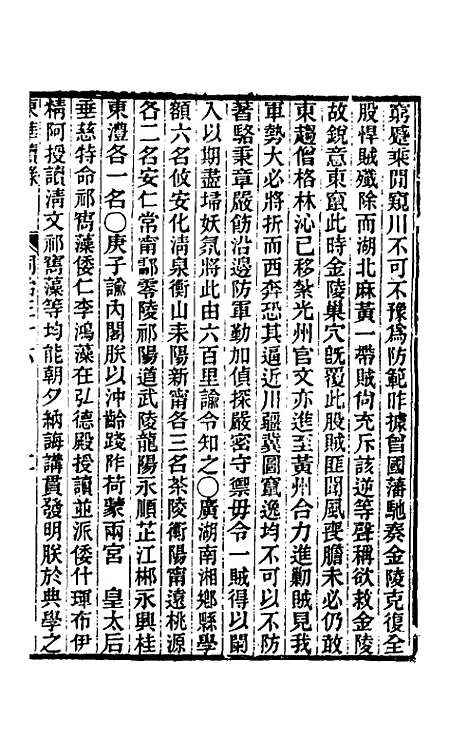 窮蹙乘閒窺川不可不豫爲防範昨據曾國藩馳奏金陵克復全
股悍賊殲除而湖北麻黃一帶賊尙充斥該逆等聲稱欲救金陵
故銳意東竄此時金陵巢穴旣覆此股賊匪聞風喪膽未必仍敢
東趨僧格林沁已移紮光州官文亦進至黃州合力進勦賊見我
軍勢大必將折而西奔恐其逼近川疆冀圖竄逸均不可以不防
著駱秉章嚴飭沿邊防軍勤加偵探嚴密守禦毋令一賊得以闌
入以期盡埽妖氛將此由六百里諭令知之○廣湖南湘鄉縣學
額六名攸安化淸泉衡山耒陽新甯各三名茶陵衡陽甯遠桃源
各二名安仁常甯酃零陵祁陽道武陵龍陽永順芷江郴永興桂
東澧各一名○庚子諭內閣朕以沖齡踐阼荷蒙兩宮 皇太后
垂慈特命祁寯藻倭仁李鴻藻在弘德殿授讀並派倭什琿布伊
精阿授讀淸文祁寯藻等均能朝夕納誨講貫發明朕於典學之
東華續錄 同治三十六